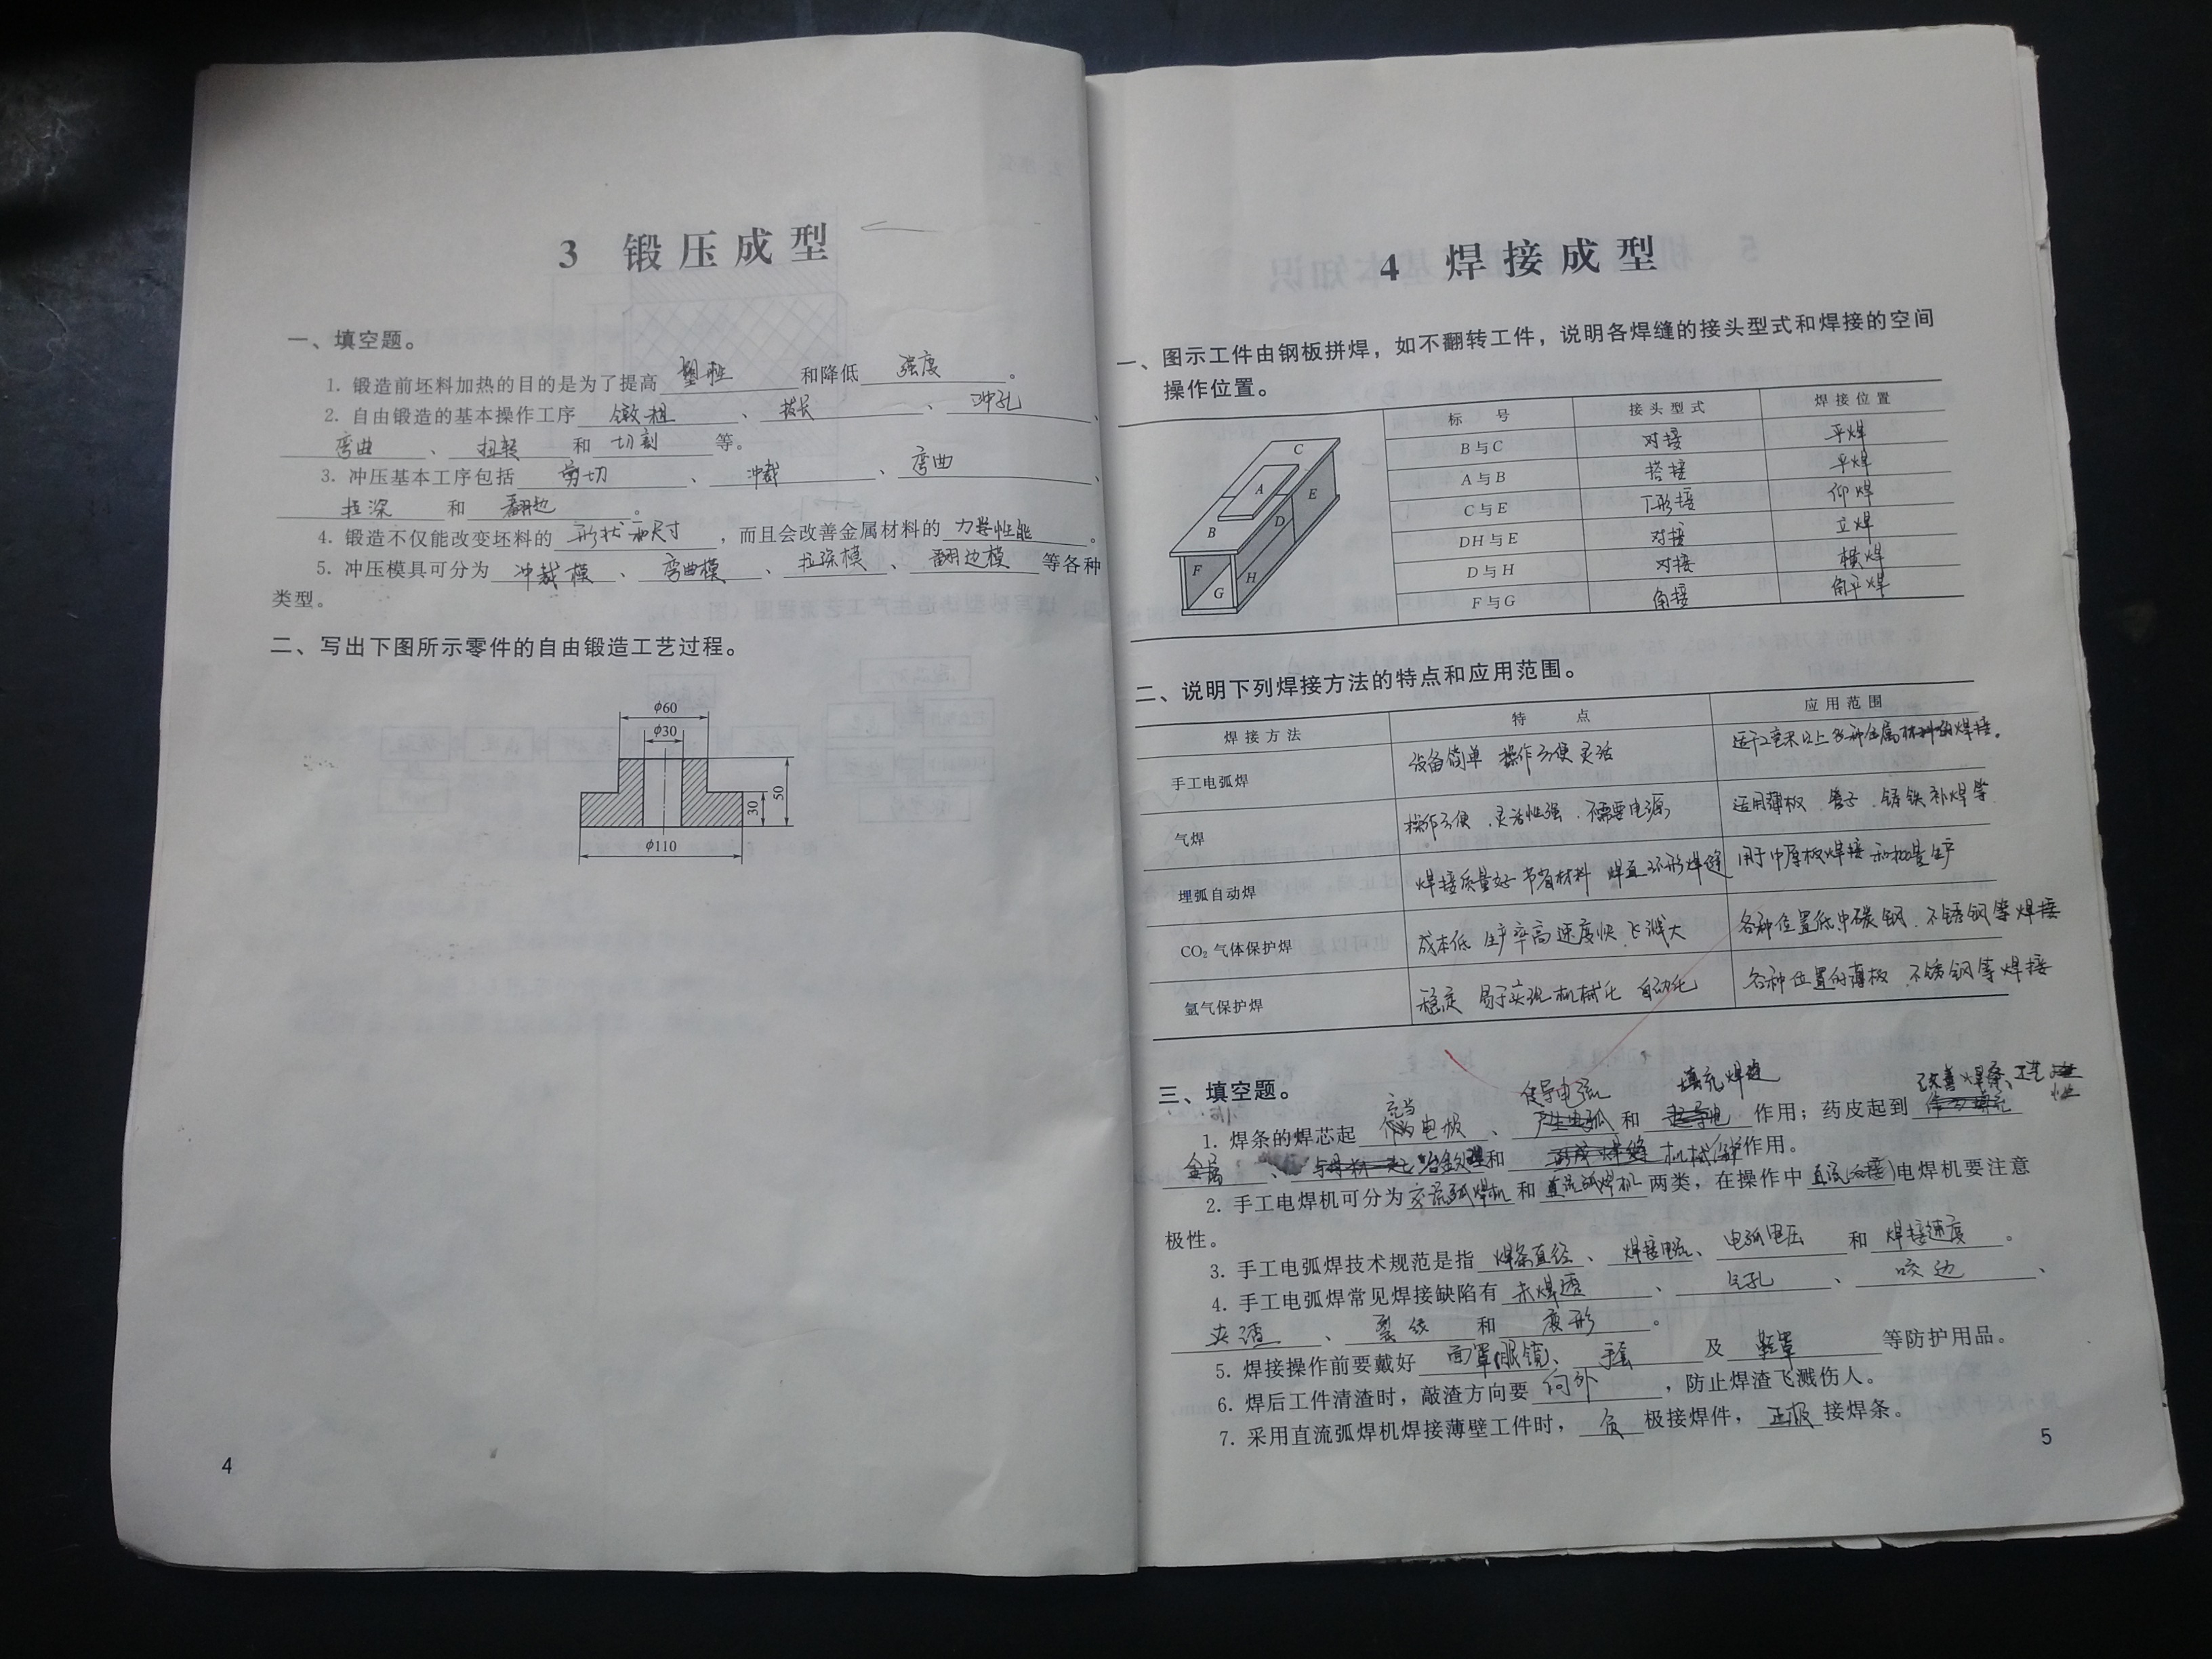 3 锻压成型
一、填空题。
1. 锻造前坯料加热的目的是为了提高 塑性 和降低 强度 。
2. 自由锻造的基本操作工序 镦粗 、 拔长 、 冲孔 、
弯曲 、 扭转 和 切割 等。
3. 冲压基本工序包括 剪切 、 冲裁 、 弯曲 、
拉深 和 翻边 。
4. 锻造不仅能改变坯料的 形状和尺寸 ，而且会改善金属材料的 力学性能 。
5. 冲压模具可分为 冲裁模 、 弯曲模 、 拉深模 、 翻边模 等各种
类型。
二、写出下图所示零件的自由锻造工艺过程。
ϕ60
ϕ30
30
50
ϕ110
4
4 焊接成型
一、图示工件由钢板拼焊，如不翻转工件，说明各焊缝的接头型式和焊接的空间
操作位置。
标 号 接头型式 焊接位置
B与C 对接 平焊
A与B 搭接 平焊
C与E 丁形接 仰焊
DH与E 对接 立焊
D与H 对接 横焊
F与G 角接 角平焊
C
A
E
B
D
F
H
G
二、说明下列焊接方法的特点和应用范围。
焊接方法 特 点 应用范围
手工电弧焊 设备简单 操作方便 灵活 适于2毫米以上各种金属材料的焊接。
气焊 操作方便、灵活性强、不需要电源 适用薄板、管子、铸铁补焊等
埋弧自动焊 焊接质量好 节省材料 焊直环形焊缝 用于中厚板焊接和批量生产
CO₂气体保护焊 成本低 生产率高 速度快 飞溅大 各种位置低、中碳钢、不锈钢等焊接
氩气保护焊 稳定 易于实现机械化 自动化 各种位置的薄板、不锈钢等焊接
三、填空题。
充当 传导电流 填充焊缝 改善焊条工艺性
1. 焊条的焊芯起 电极 、 产生电弧 和 作用；药皮起到
金属 、 冶金处理 和 形成焊缝 机械保护 作用。
2. 手工电焊机可分为 交流弧焊机 和 直流弧焊机 两类，在操作中 直流 电焊机要注意
极性。
3. 手工电弧焊技术规范是指 焊条直径 、 焊接电流 、 电弧电压 和 焊接速度 。
4. 手工电弧焊常见焊接缺陷有 未焊透 、 气孔 、 咬边 、
夹渣 、 裂纹 和 变形 。
5. 焊接操作前要戴好 面罩(眼镜) 、 手套 及 鞋罩 等防护用品。
6. 焊后工件清渣时，敲渣方向要 向外 ，防止焊渣飞溅伤人。
7. 采用直流弧焊机焊接薄壁工件时， 负 极接焊件， 正极 接焊条。
5